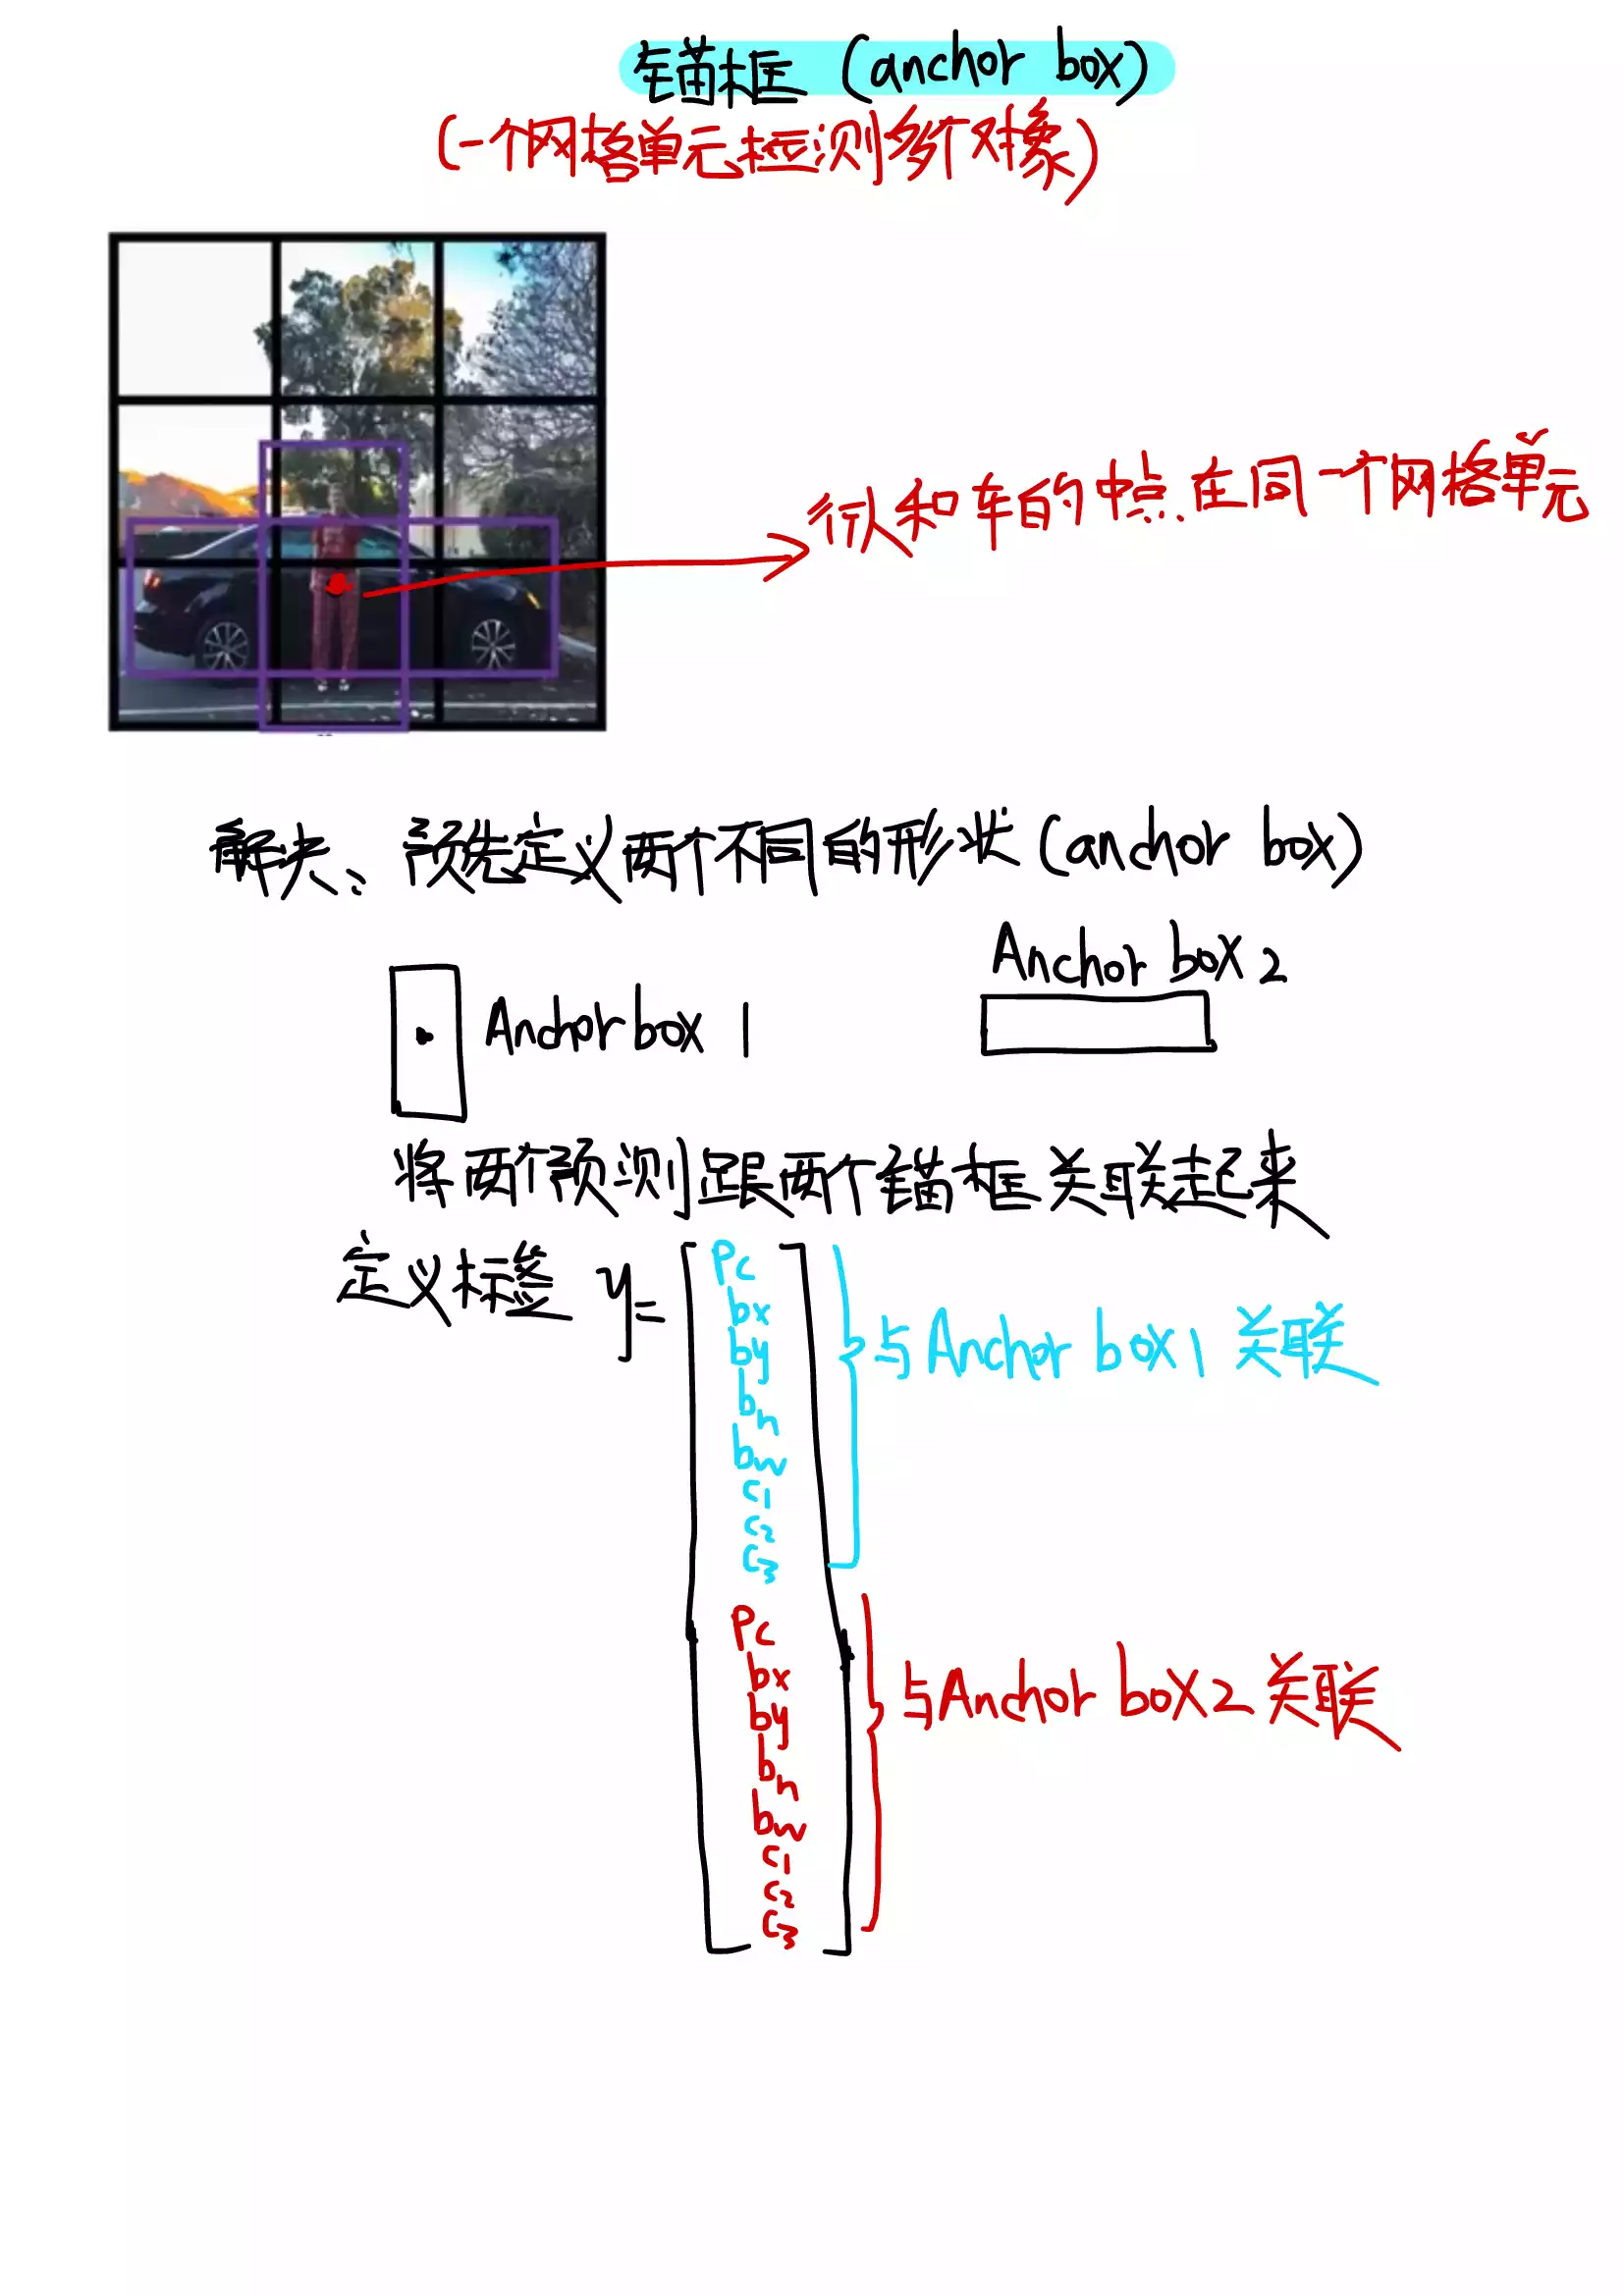 锚框 (anchor box)
(一个网格单元检测多个对象)
行人和车的中点在同一个网格单元
解决: 预先定义两个不同的形状 (anchor box)
Anchor box 1
Anchor box 2
将两个预测跟两个锚框关联起来
定义标签 y=
Pc
bx
by
bh
bw
c1
c2
c3
与Anchor box 1 关联
Pc
bx
by
bh
bw
c1
c2
c3
与Anchor box 2 关联